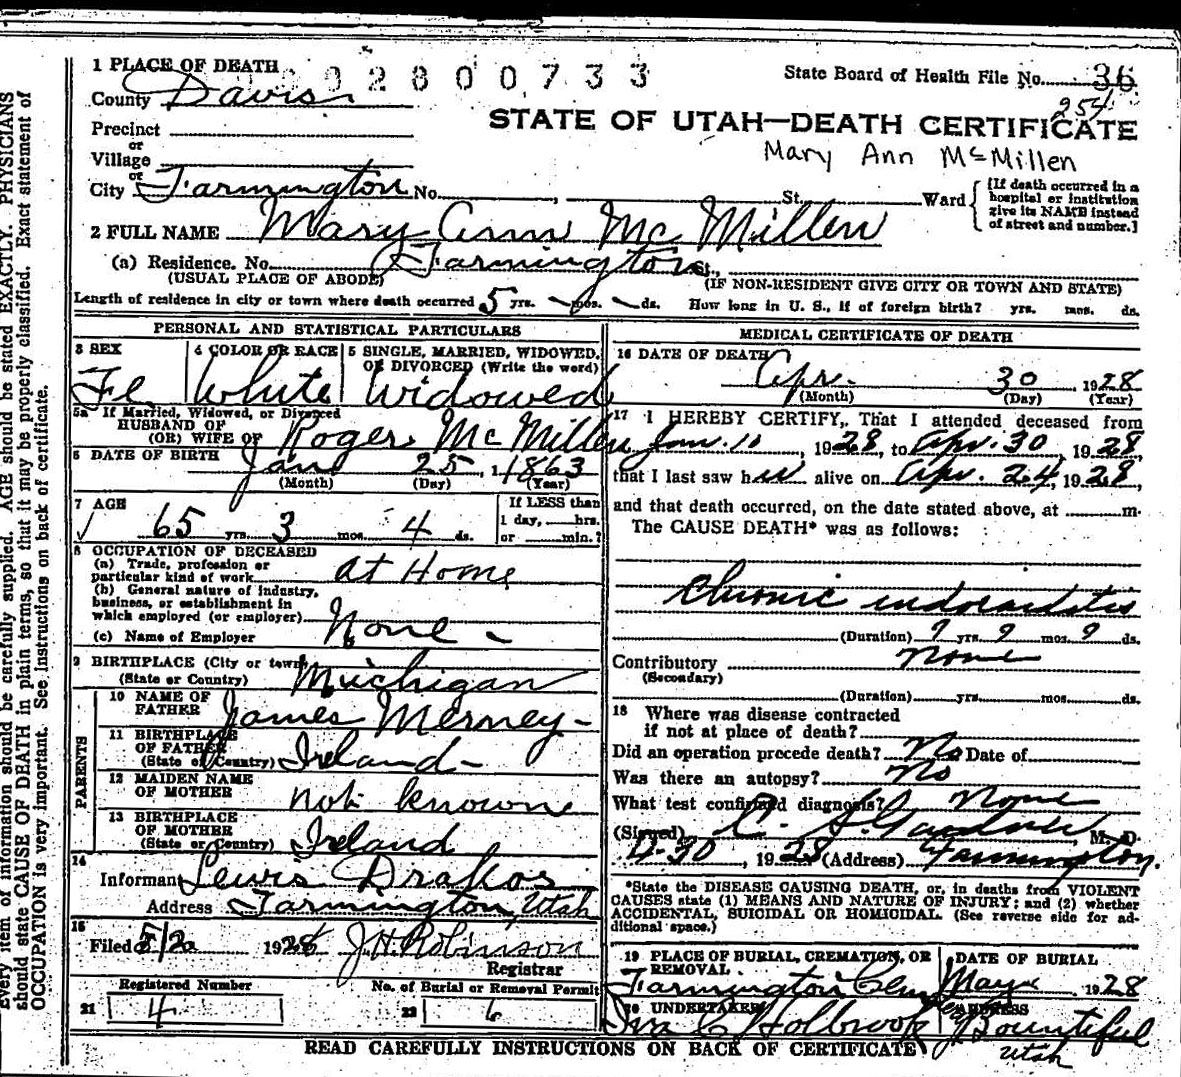 1 PLACE OF DEATH
2 8 0 0 7 3 3
State Board of Health File No. 36
254
County Davis
STATE OF UTAH—DEATH CERTIFICATE
Mary Ann McMillen
Precinct
or
Village
or
City Farmington No. , St. Ward
[If death occurred in a
hospital or institution
give its NAME instead
of street and number.]
2 FULL NAME Mary Ann McMillen
(a) Residence. No. Farmington St.,
(USUAL PLACE OF ABODE) (IF NON-RESIDENT GIVE CITY OR TOWN AND STATE)
Length of residence in city or town where death occurred 5 yrs. — mos. — ds. How long in U. S., if of foreign birth? yrs. mos. ds.
PERSONAL AND STATISTICAL PARTICULARS
3 SEX 4 COLOR OR RACE 5 SINGLE, MARRIED, WIDOWED,
OR DIVORCED (Write the word)
Fe White Widowed
5a If Married, Widowed, or Divorced
HUSBAND OF
(OR) WIFE OF Roger McMillen
6 DATE OF BIRTH Jan 25, 1863
(Month) (Day) (Year)
7 AGE If LESS than
65 yrs. 3 mos. 4 ds. 1 day, hrs.
or min.?
8 OCCUPATION OF DECEASED
(a) Trade, profession or
particular kind of work at Home
(b) General nature of industry,
business, or establishment in
which employed (or employer) None -
(c) Name of Employer
9 BIRTHPLACE (City or town)
(State or Country) Michigan
PARENTS
10 NAME OF
FATHER James Merney-
11 BIRTHPLACE
OF FATHER
(State or Country) Ireland-
12 MAIDEN NAME
OF MOTHER not known
13 BIRTHPLACE
OF MOTHER
(State or Country) Ireland
14
Informant Lewis Drakos
Address Farmington, Utah
15
Filed 5/2 1928 J.H. Robinson
Registrar
Registered Number No. of Burial or Removal Permit
21 4 22 6
MEDICAL CERTIFICATE OF DEATH
16 DATE OF DEATH
Apr. 30, 1928
(Month) (Day) (Year)
17 I HEREBY CERTIFY, That I attended deceased from
Jan. 10, 1928, to Apr. 30, 1928,
that I last saw her alive on Apr. 24, 1928,
and that death occurred, on the date stated above, at m.
The CAUSE DEATH* was as follows:
Chronic endocarditis
(Duration) ? yrs. ? mos. ? ds.
Contributory None
(Secondary)
(Duration) yrs. mos. ds.
18 Where was disease contracted
if not at place of death?
Did an operation precede death? No Date of
Was there an autopsy? No
What test confirmed diagnosis? None
(Signed) C. S. Gardner M. D.
4-30, 1928 (Address) Farmington.
*State the DISEASE CAUSING DEATH, or, in deaths from VIOLENT
CAUSES state (1) MEANS AND NATURE OF INJURY; and (2) whether
ACCIDENTAL, SUICIDAL OR HOMICIDAL. (See reverse side for ad-
ditional space.)
19 PLACE OF BURIAL, CREMATION, OR
REMOVAL. DATE OF BURIAL
Farmington Cem May 1928
20 UNDERTAKER ADDRESS
Ira C Holbrook Bountiful
Utah
READ CAREFULLY INSTRUCTIONS ON BACK OF CERTIFICATE
Every item of information should be carefully supplied. AGE should be stated EXACTLY. PHYSICIANS
should state CAUSE OF DEATH in plain terms, so that it may be properly classified. Exact statement of
OCCUPATION is very important. See instructions on back of certificate.